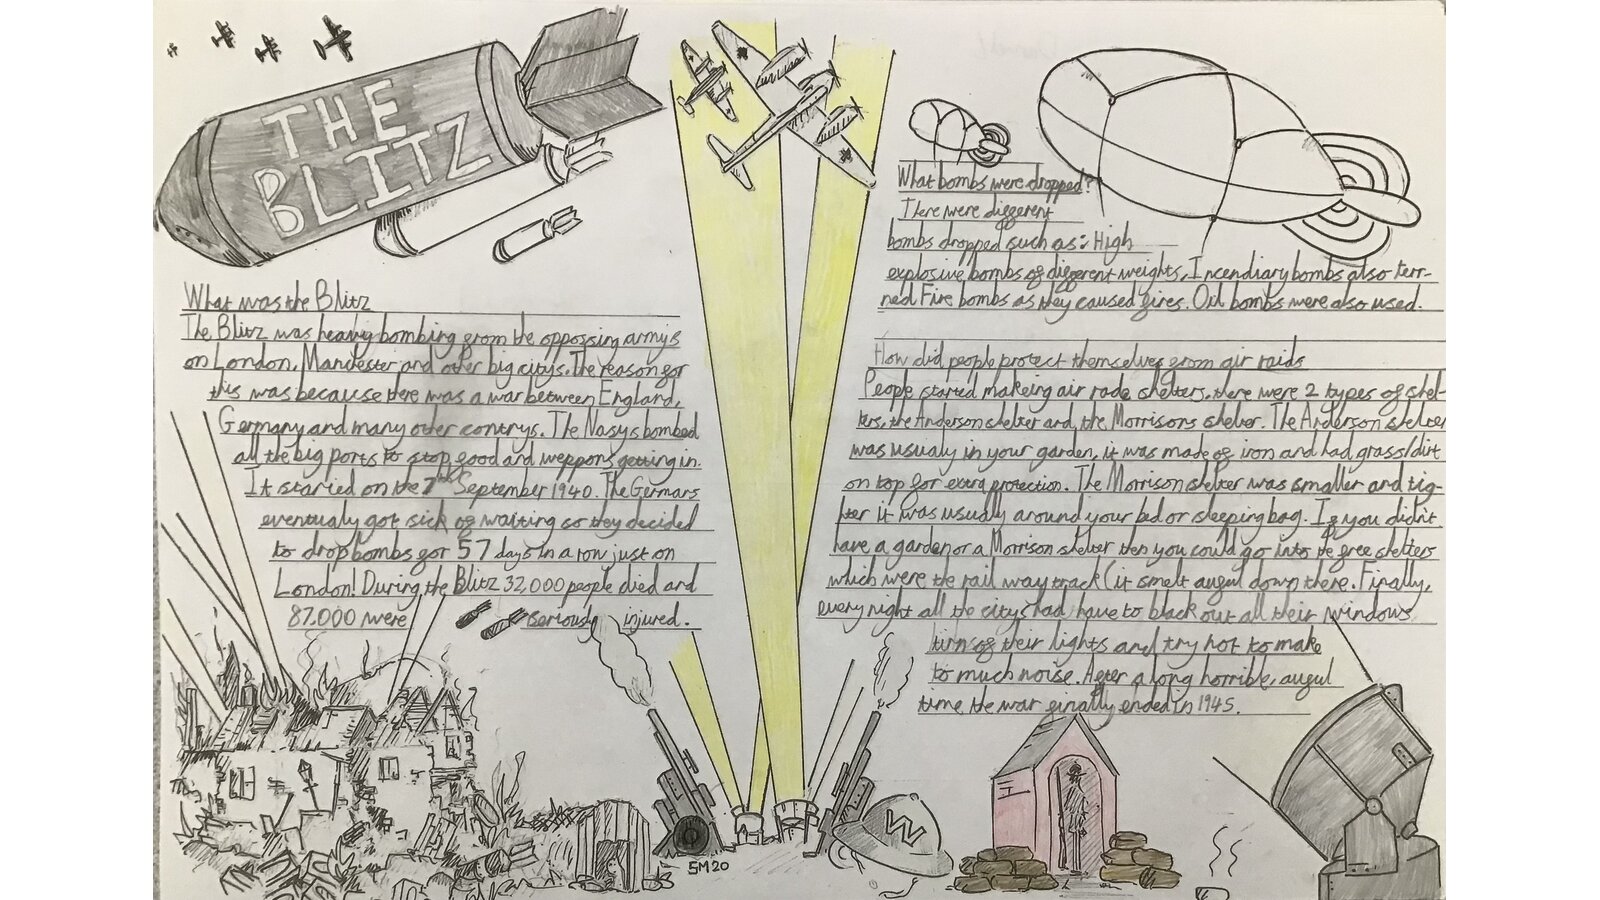 THE
BLITZ
What was the Blitz
The Blitz was heaviy bombing from the oppossing armys
on London, Manchester and other big citys. The reason for
this was because there was a war between England,
Germany and many other contrys. The Nasys bombed
all the big ports to stop good and weppons getting in.
It started on the 7th September 1940. The Germans
eventualy got sick of waiting so they decided
to drop bombs for 57 days in a row just on
London! During the Blitz 32,000 people died and
87.000 were seriously injured.
What bombs were dropped?
There were different
bombs dropped such as: High
explosive bombs of different weights, Incendiary bombs also ter-
med Fire bombs as they caused fires. Oil bombs were also used.
How did people protect themselves from air raids
People started makeing air rade shelters, there were 2 types of shel-
ters, the Anderson shelter and, the Morrisons shelter. The Anderson shelter
was usualy in your garden, it was made of iron and had grass/dirt
on top for extra protection. The Morrison shelter was smaller and tig-
hter it was usually around your bed or sleeping bag. If you didn't
have a garden or a Morrison shelter then you could go into the free shelters
which were the rail way track (it smelt auful down there. Finally,
every night all the citys had have to black out all their windows
turn of their lights and try not to make
to much noise. After a long horrible, auful
time the war finally ended in 1945.
SM20
W